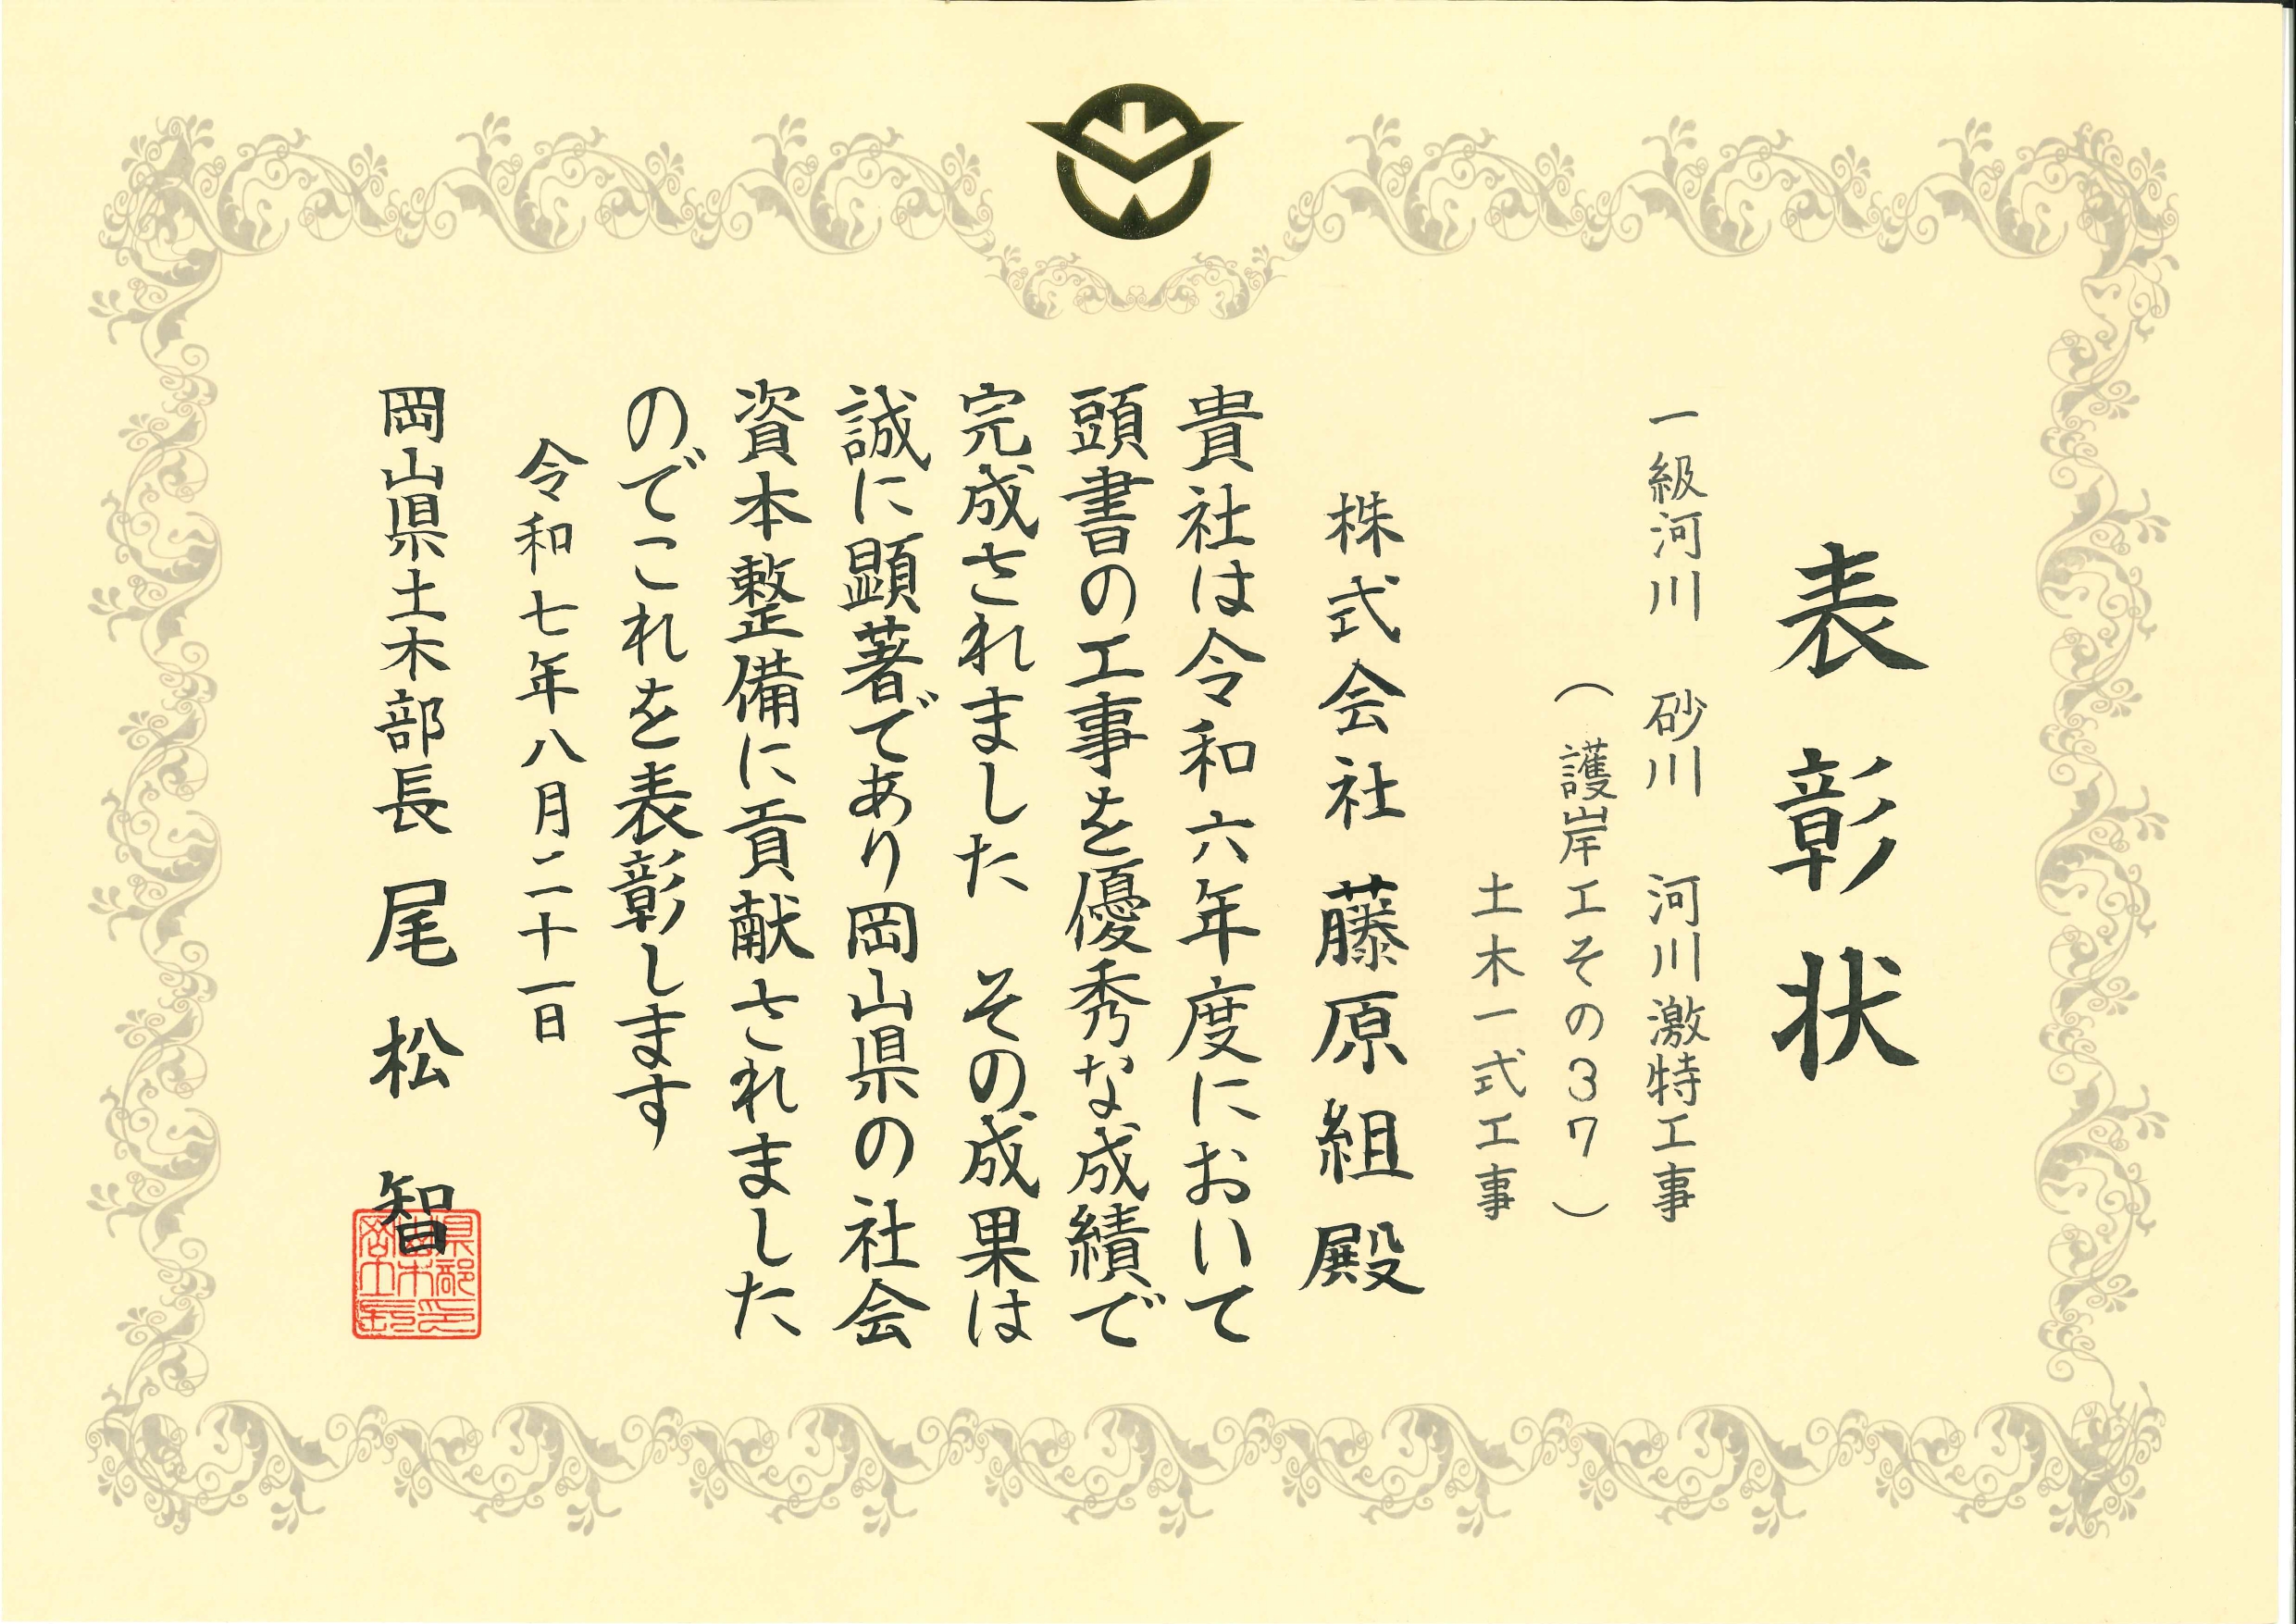 表彰状
一級河川　砂川　河川激特工事
（護岸工その３７）
土木一式工事
株式会社藤原組殿
貴社は令和六年度において
頭書の工事を優秀な成績で
完成されました　その成果は
誠に顕著であり岡山県の社会
資本整備に貢献されました
のでこれを表彰します
令和七年八月二十一日
岡山県土木部長　尾松　智
岡山県土木部長之印